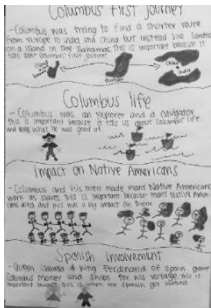 Columbus first journey
-Columbus was trying to find a shorter route
from europe to india and china but instead he landed
on a Island in the Bahamas. this is important because it
tells about Columbus' first journey
Europe
China
India
Columbus life
- Columbus was an explorer and a navigator
this is important because it tells us about columbus life
and what he was good at
Impact on Native Americans
-Columbus and his men made many Native Americans
work as slaves. this is important because many Native Amer-
icans died and this was a big impact on them
Spanish Involvement
-Queen Isabella & king Ferdinand of spain gave
Columbus money and ships for his voyage. this is
important because this is when the Spanish got involved